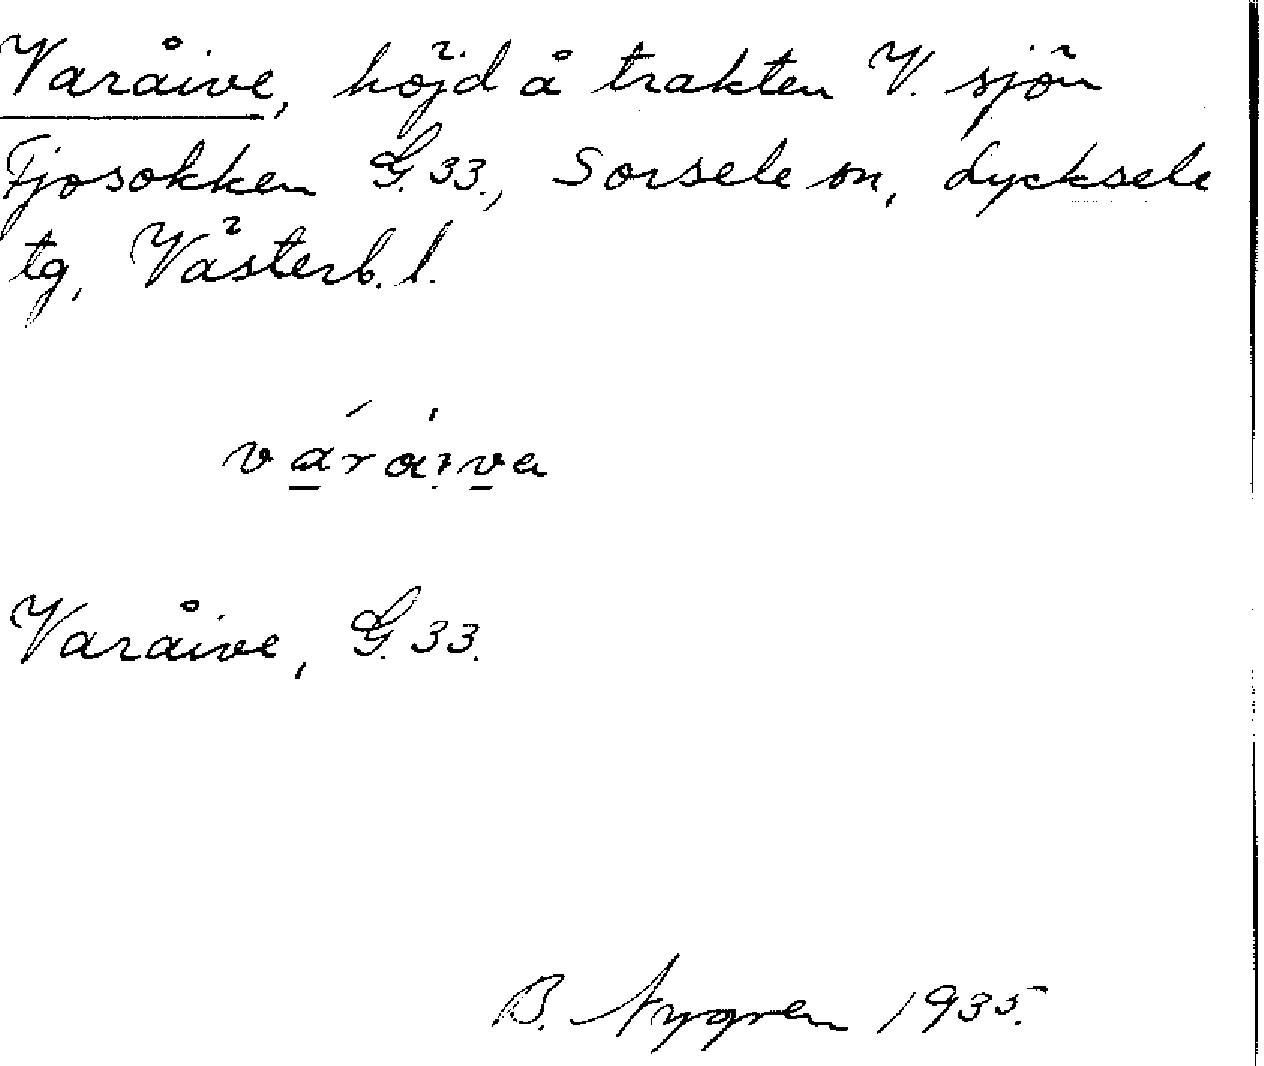 Varåive, höjd å trakten V. sjön
Fjosokken G. 33., Sorsele sn, Lycksele
tg, Västerb. l.
váraiva
Varåive, G. 33.
B. Nygren 1935.